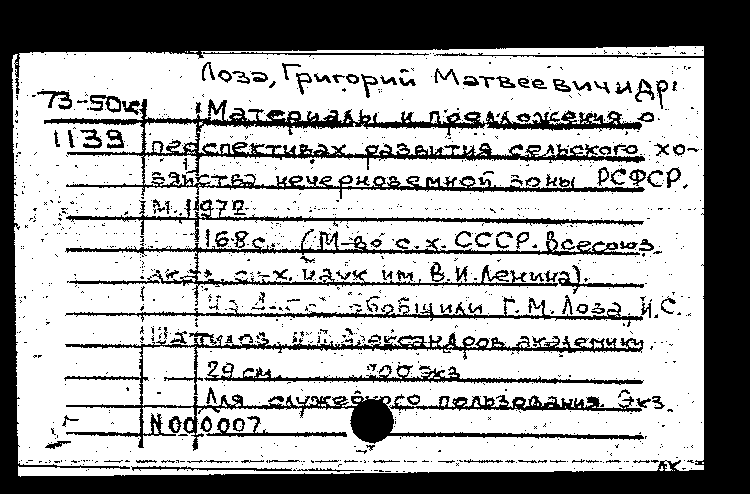 Лоза, Григорий Матвеевич и др.
73-50к
1139
Материалы и предложения о
перспективах развития сельского хо-
зяйства нечерноземной зоны РСФСР.
М. 1972
168 с. (М-во с.х. СССР. Всесоюз.
акад. с.-х. наук им. В.И. Ленина).
обобщили Г.М. Лоза, И.С.
Шатилов, Александров академики.
29 см. 200 экз
Для служебного пользования. Экз.
N 000007.